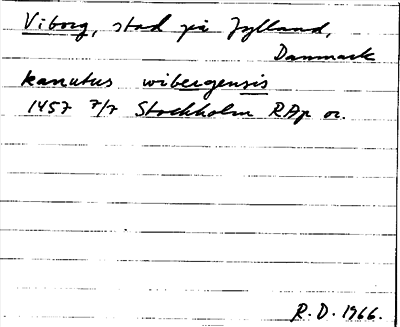 Viborg, stad på Jylland,
Danmark
kanutus wibergensis
1457 7/7 Stockholm RAp or.
R.D. 1966.